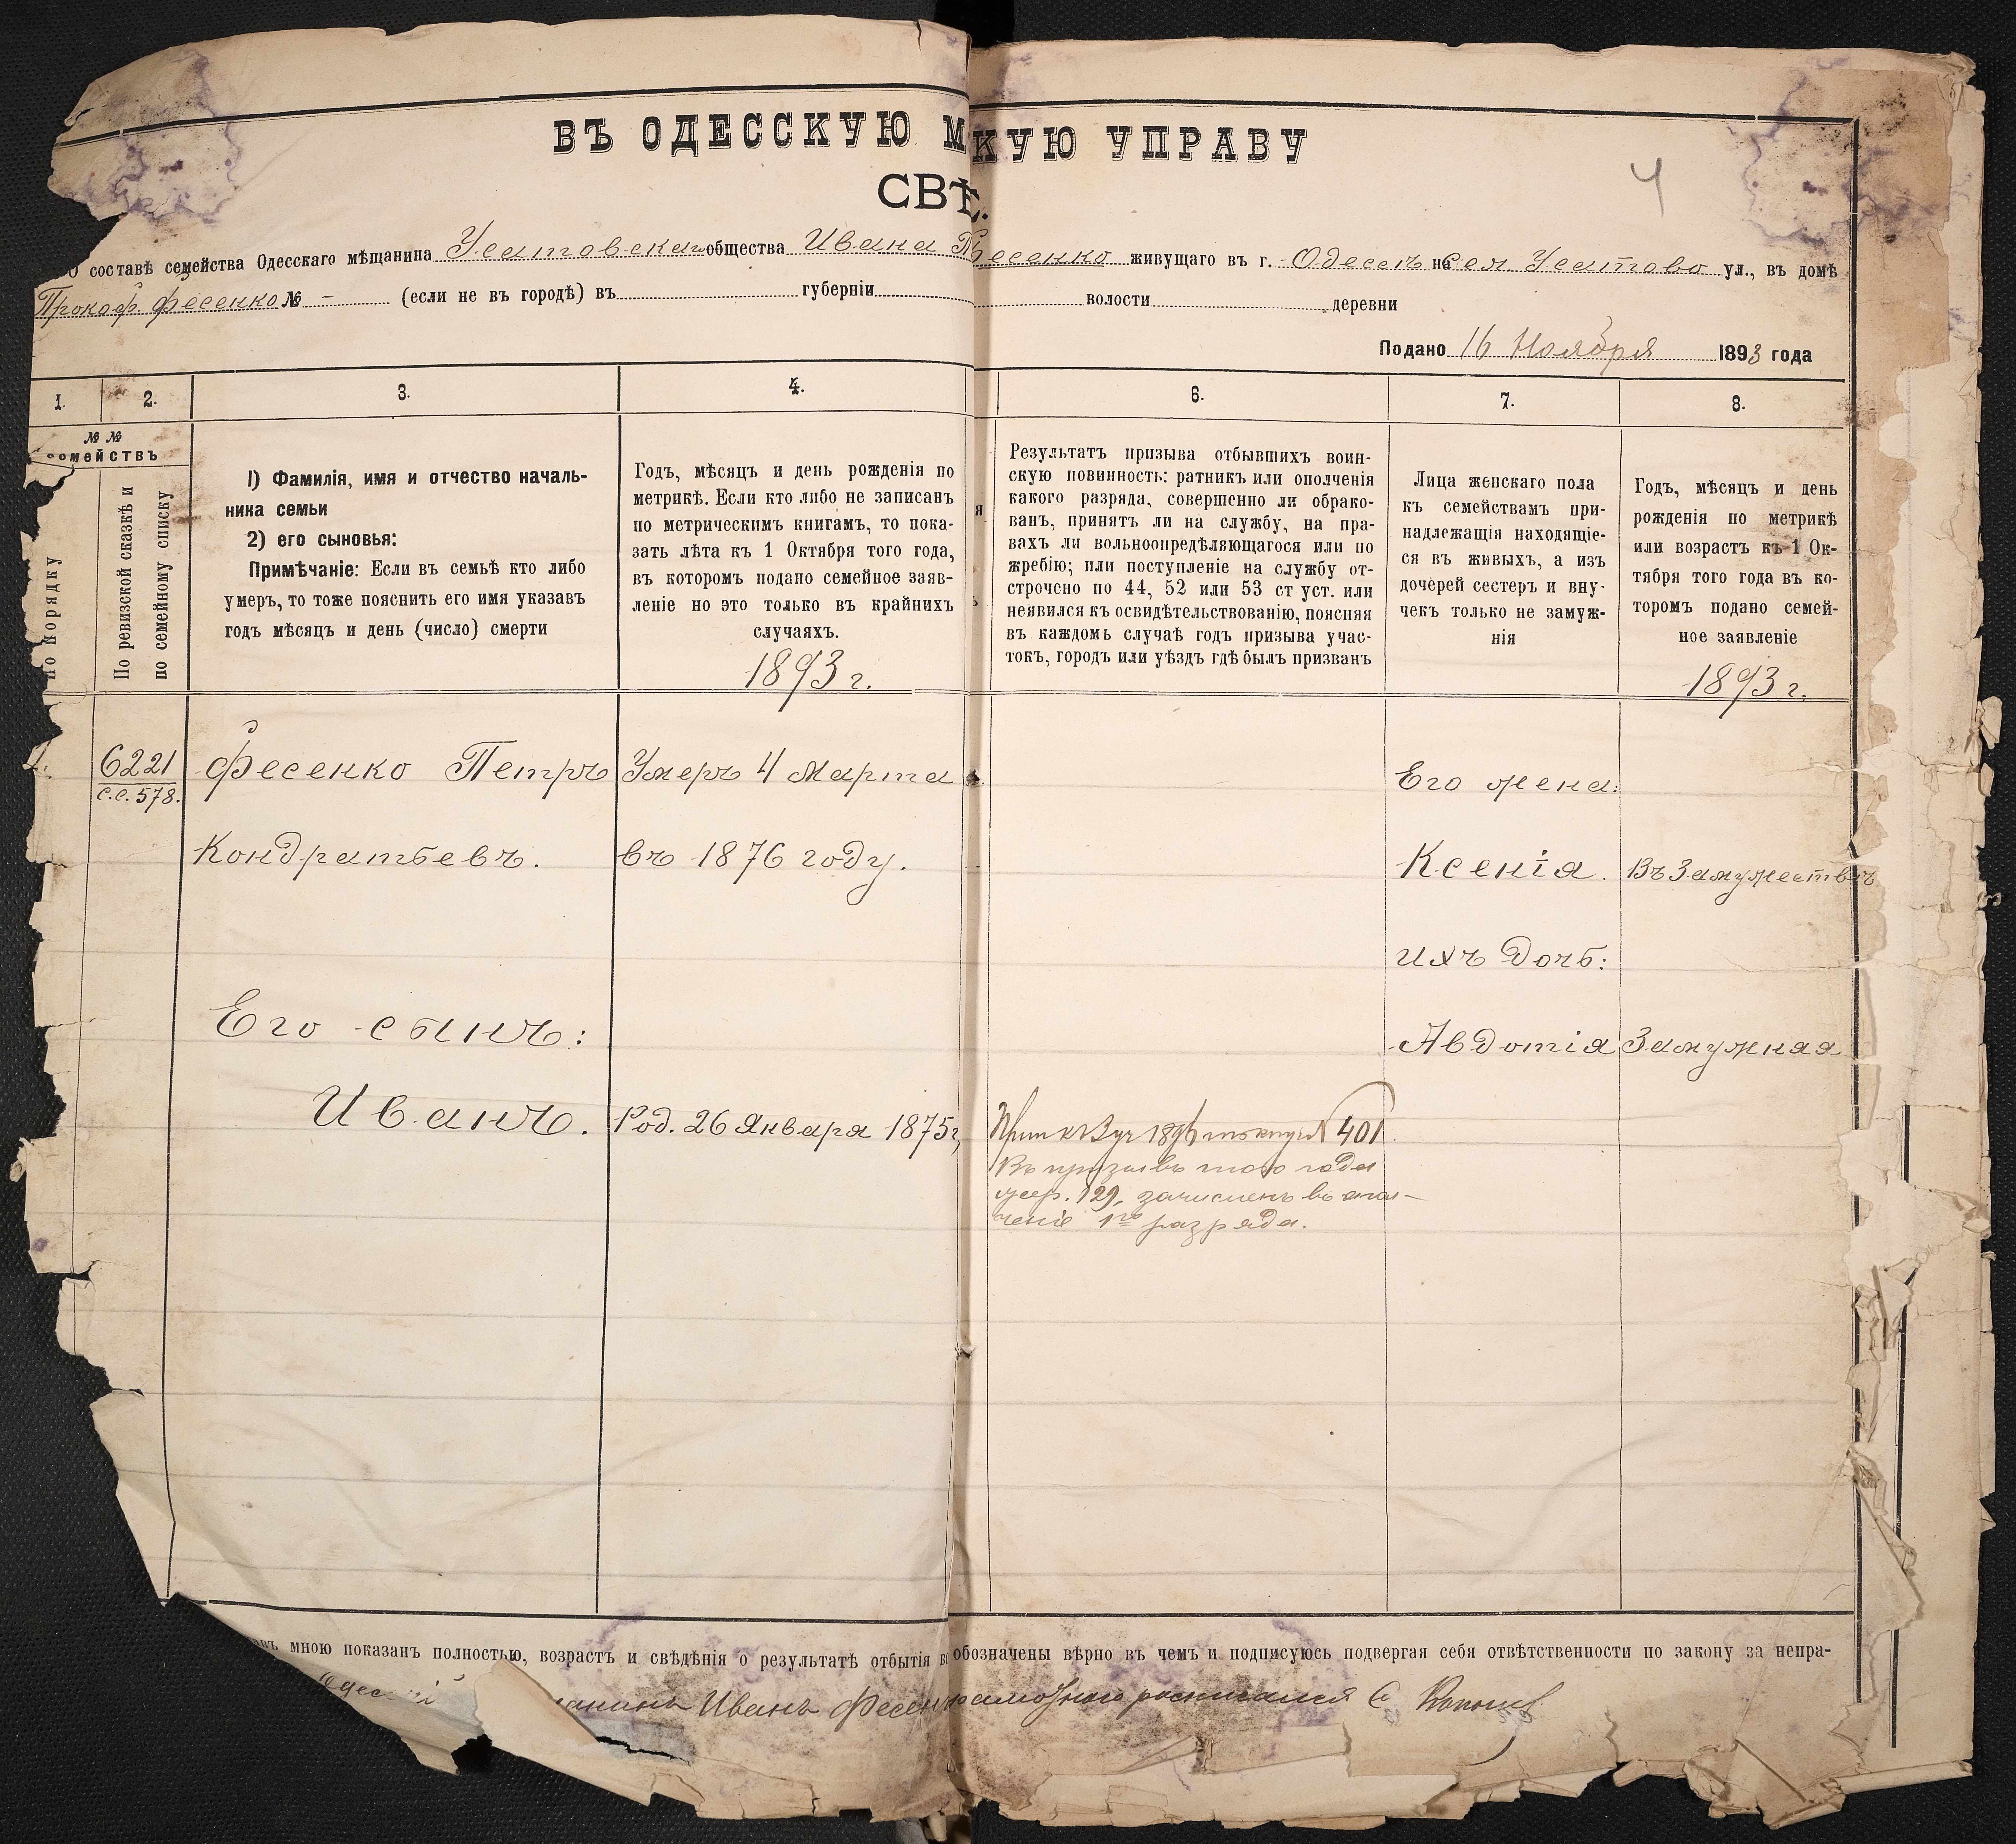 ВЪ ОДЕССКУЮ М КУЮ УПРАВУ
СВѢ
О составѣ семейства Одесскаго мѣщанина Усатовскаго общества Ивана Фесенко живущаго въ г. Одессѣ на Сел. Усатово ул., въ домѣ
Прокоф. Фесенко № - (если не въ городѣ) въ губерніи волости деревни
Подано 16 Ноября 1893 года
4
1. 2. 3. 4. 6. 7. 8.
№ №
семействъ
по порядку
По ревизской сказкѣ и
по семейному списку
1) Фамилія, имя и отчество началь-
ника семьи
2) его сыновья:
Примѣчаніе: Если въ семьѣ кто либо
умеръ, то тоже пояснить его имя указавъ
годъ мѣсяцъ и день (число) смерти
Годъ, мѣсяцъ и день рожденія по
метрикѣ. Если кто либо не записанъ
по метрическимъ книгамъ, то пока-
зать лѣта къ 1 Октября того года,
въ которомъ подано семейное заяв-
леніе но это только въ крайнихъ
случаяхъ.
1893 г.
Результатъ призыва отбывшихъ воин-
скую повинность: ратникъ или ополченія
какого разряда, совершенно ли обрако-
ванъ, принятъ ли на службу, на пра-
вахъ ли вольноопредѣляющагося или по
жребію; или поступленіе на службу от-
строчено по 44, 52 или 53 ст уст. или
неявился къ освидѣтельствованію, поясняя
въ каждомъ случаѣ годъ призыва учас-
токъ, городъ или уѣздъ гдѣ былъ призванъ
Лица женскаго пола
къ семействамъ при-
надлежащія находящіе-
ся въ живыхъ, а изъ
дочерей сестеръ и вну-
чекъ только не замуж-
нія
Годъ, мѣсяцъ и день
рожденія по метрикѣ
или возрастъ къ 1 Ок-
тября того года въ ко-
торомъ подано семей-
ное заявленіе
1893 г.
1. 6221 Фесенко Петръ Умеръ 4 Марта Его жена:
с.с. 578.
Кондратьевъ. въ 1876 году. Ксенія. Въ Замужествѣ
ихъ Дочь:
Его сынъ: Авдотія Замужняя
Иванъ. Род. 26 Января 1875 г, 401
Въ призывъ того года
жер. 129, зачисленъ въ опол-
ченіе 1го разряда.
мною показанъ полностью, возрастъ и свѣдѣнія о результатѣ отбытія во обозначены вѣрно въ чемъ и подписуюсь подвергая себя отвѣтственности по закону за непра-
Иванъ Фесен росписался